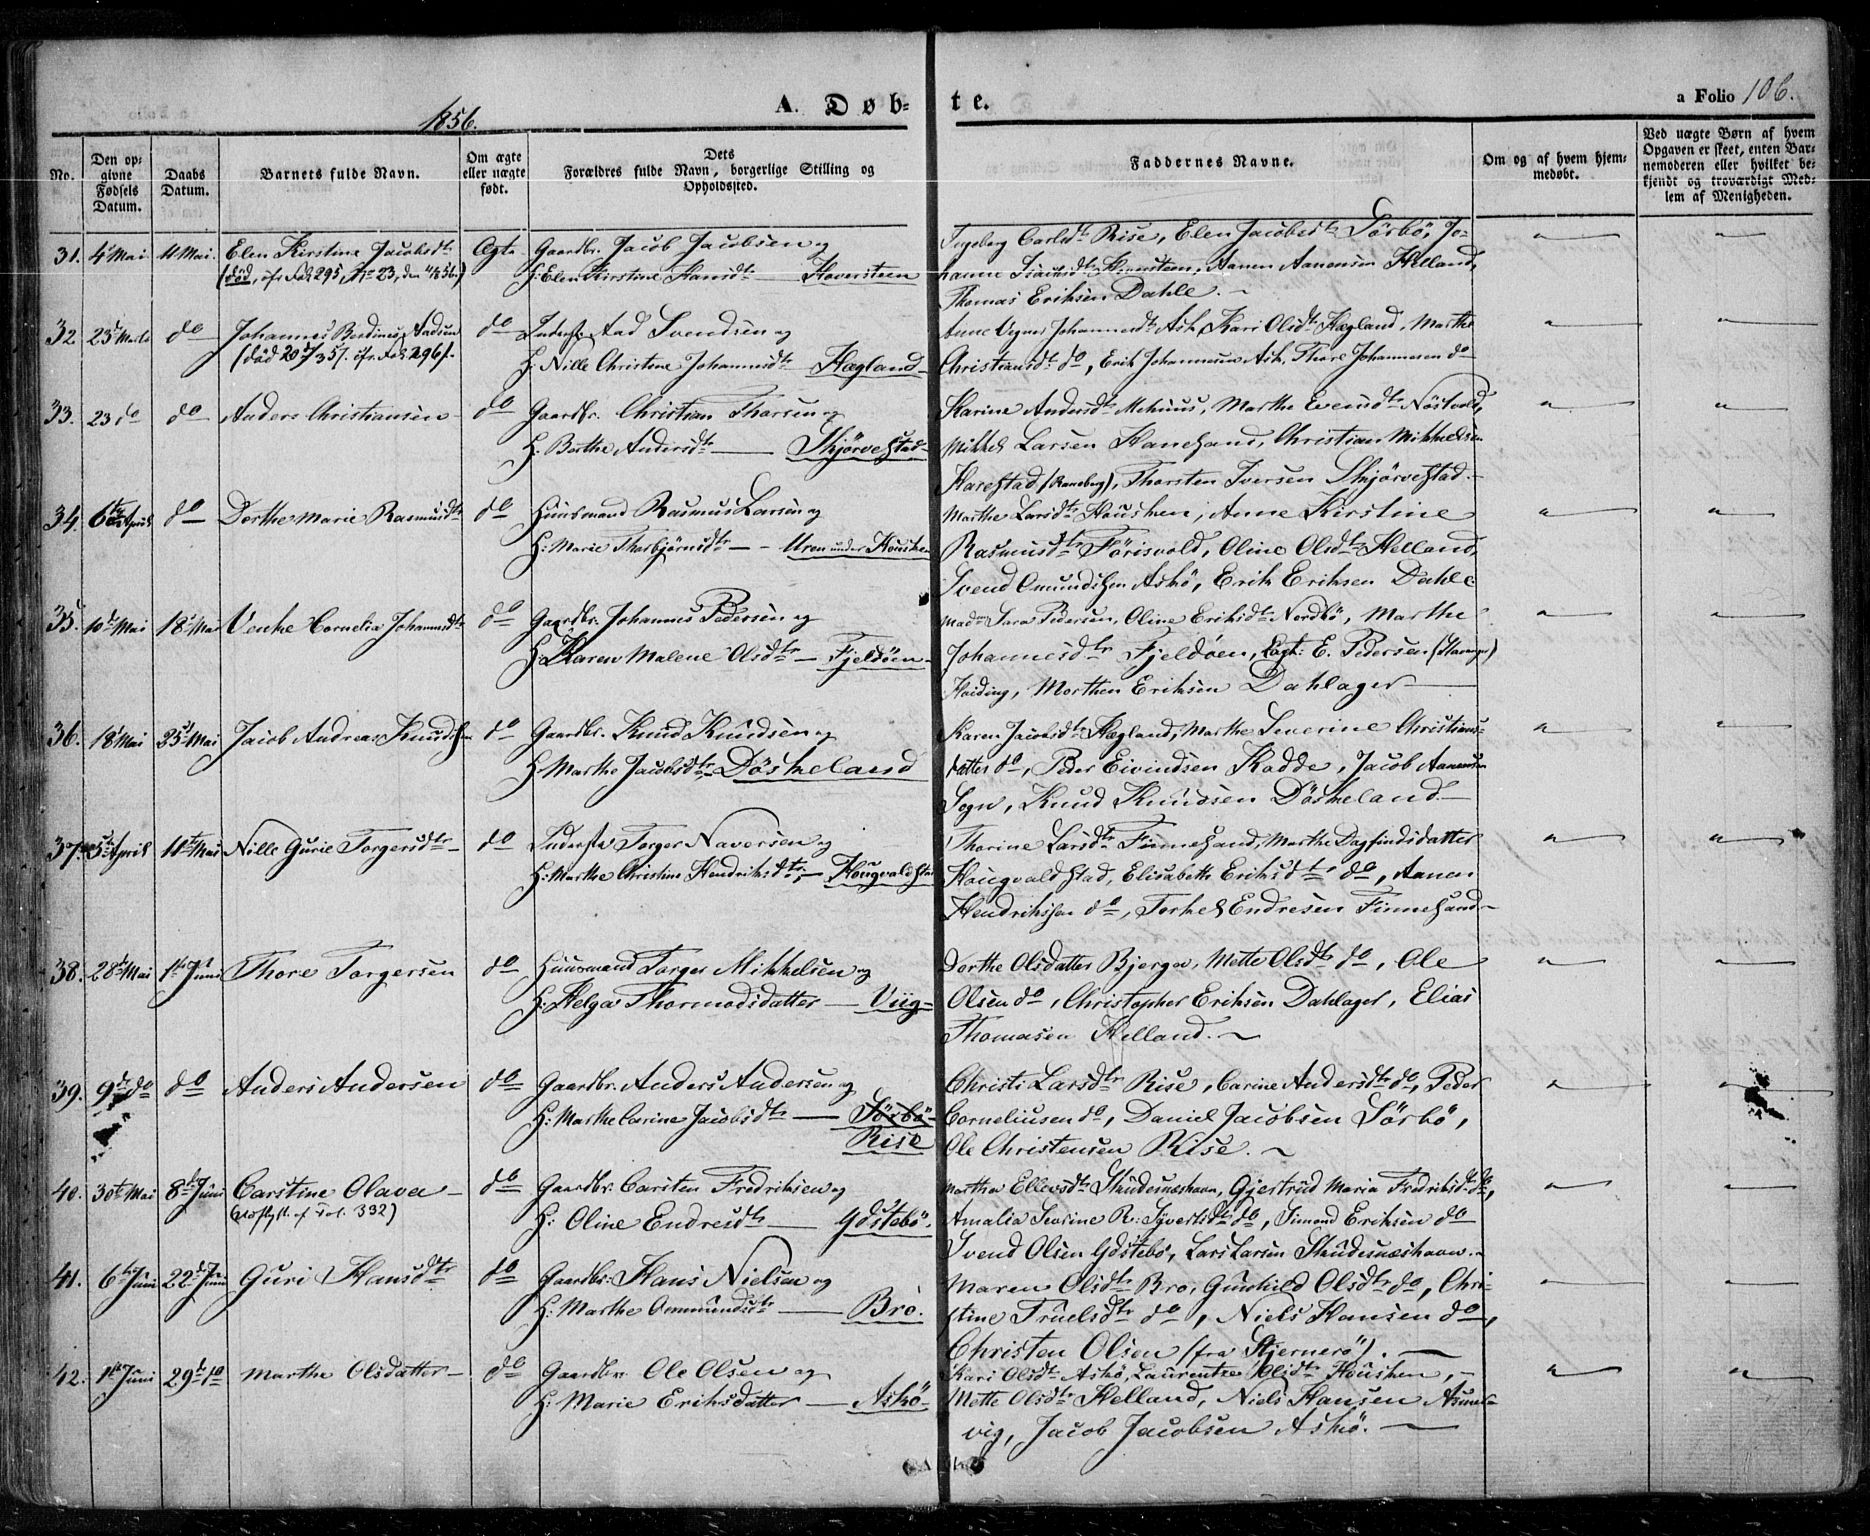 1856.
A. Døb-
te.
a Folio 106.
No.
Den op-
givne
Fødsels
Datum.
Daabs
Datum.
Barnets fulde Navn.
Om ægte
eller uægte
født.
Dets
Forældres fulde Navn, borgerlige Stilling og
Opholdssted.
Faddernes Navne.
Om og af hvem hjem-
medøbt.
Ved uægte Børn af hvem
Opgaven er skeet, enten Bar-
nemoderen eller hvilket be-
kjendt og troværdigt Med-
lem af Menigheden.
31. 4de Mai 11 Mai. Elen Kirstine Jacobsdtr Ægte Gaardbr. Jacob Jacobsen og
(død, cfr. Fol 295, No 23, den 11/5 56.) H: Elen Kirstine Hansdtr — Hoversteen
Ingeborg Carlsdtr Rise, Elen Jacobsdtr Sörbö, Jo-
hanne Isachsdtr Hoversteen, Aanen Aanensen Helland,
Thomas Eriksen Dahle. ~
32. 23de Marts do Johannes Berdinus Aadsen do Inderst Aad Svendsen og
(død 20 5/7 35/. cfr. Fol. 296). H: Nille Christine Johannesdtr Hægland
Anne Johannesdtr Ask, Kari Olsdtr Hægland, Marthe
Christiansdtr do, Erik Johannesen Ask, Thore Johannesen do
33. 23 do do Anders Christiansen do Gaardbr. Christian Thorsen og
H. Berthe Andersdtr — Skjørvestad
Karine Andersdtr Mehuus, Marthe Evensdtr Nöstvold,
Mikkel Larsen Hanesand, Christian Mikkelsen
Harestad (Randeberg), Thorsten Iversen Skjörvestad.
34. 6te April do Dorthe Marie Rasmusdtr do Huusmand Rasmus Larsen og
H: Marie Thorbjörnsdtr — Uren under Housken
Marthe Larsdtr Housken, Anne Kirstine
Rasmusdtr Förisvold, Oline Olsdtr Helland,
Svend Omundsen Askö, Erik Eriksen Dahle
35. 10de Mai 18de Mai Venke Cornelia Johannesdtr do Gaardbr. Johannes Pedersen og
H: Karen Malene Olsdtr — Fjeldöen
Madm Sara Pedersen, Oline Eriksdtr Nordbö, Marthe
Johannesdtr Fjeldöen, E. Pedersen (Stavanger)
Haiding, Morthen Eriksen Dahlager —
36. 18de Mai 25de Mai Jacob Andreas Knudsen do Gaardbr. Knud Knudsen og
H Marthe Jacobsdtr Döskeland
Karen Jacobsdtr Hægland, Marthe Severine Christians-
datter do, Peder Eivindsen Kodde, Jacob Aanensen
Sogn, Knud Knudsen Döskeland. —
37. 5te April 11te Mai Nille Gurie Torgersdtr do Inderste Torger Naversen og
H: Marthe Christine Hendriksdtr, — Hougvaldstad
Thorine Larsdtr Finnesand, Marthe Dagfindsdatter
Hougvaldstad, Elisabeth Eriksdtr do, Aanen
Hendriksen do, Torkel Endresen Finnesand~
38. 28de Mai 1ste Juni Thore Torgersen do Huusmand Torger Mikkelsen og
H: Helga Thormodsdatter — Viig
Dorthe Olsdatter Bjerga, Mette Olsdtr do, Ole
Olsen do, Christopher Eriksen Dahlager, Elias
Thomasen Helland. ~
39. 9de do do Anders Andersen do Gaardbr. Anders Andersen og
H: Marthe Carine Jacobsdtr — Sörbö
Rise
Christi Larsdtr Rise, Carine Andersdtr do, Peder
Corneliusen do, Daniel Jacobsen Sörbö,
Ole Christensen Rise. ~
40. 30te Mai 8de Juni Carstine Olava do Gaardbr. Carsten Fredriksen og
(Udflytt. cf. Fol. 332) H: Oline Endresdtr — Ydstebö.
Marthea Ellevsdtr Skudesnæshavn, Gjestrud Maria Fredriksdtr do,
Amalia Severine R: Syvertsdtr do, Simond Eriksen do
Svend Olsen Ydstebö, Lars Larsen Skudesnæshavn.
41. 6te Juni 22de Juni Guri Hansdtr do Gaardbr. Hans Nielsen og
H: Marthe Oemmundsdtr — Bro.
Maren Olsdtr Bro, Gunhild Olsdtr do, Chri-
stine Truelsdtr do, Niels Hansen do,
Christen Olsen (fra Stjernerö). —
42. 1ste Juni 29de do Marthe Olsdatter do Gaardbr. Ole Olsen og
H: Marie Eriksdatter — Askö
Kari Olsdtr Askö, Laurentze Olsdtr Housken, —
Mette Olsdtr Helland, Niels Hansen Asmar-
vig, Jacob Jacobsen Askö. —